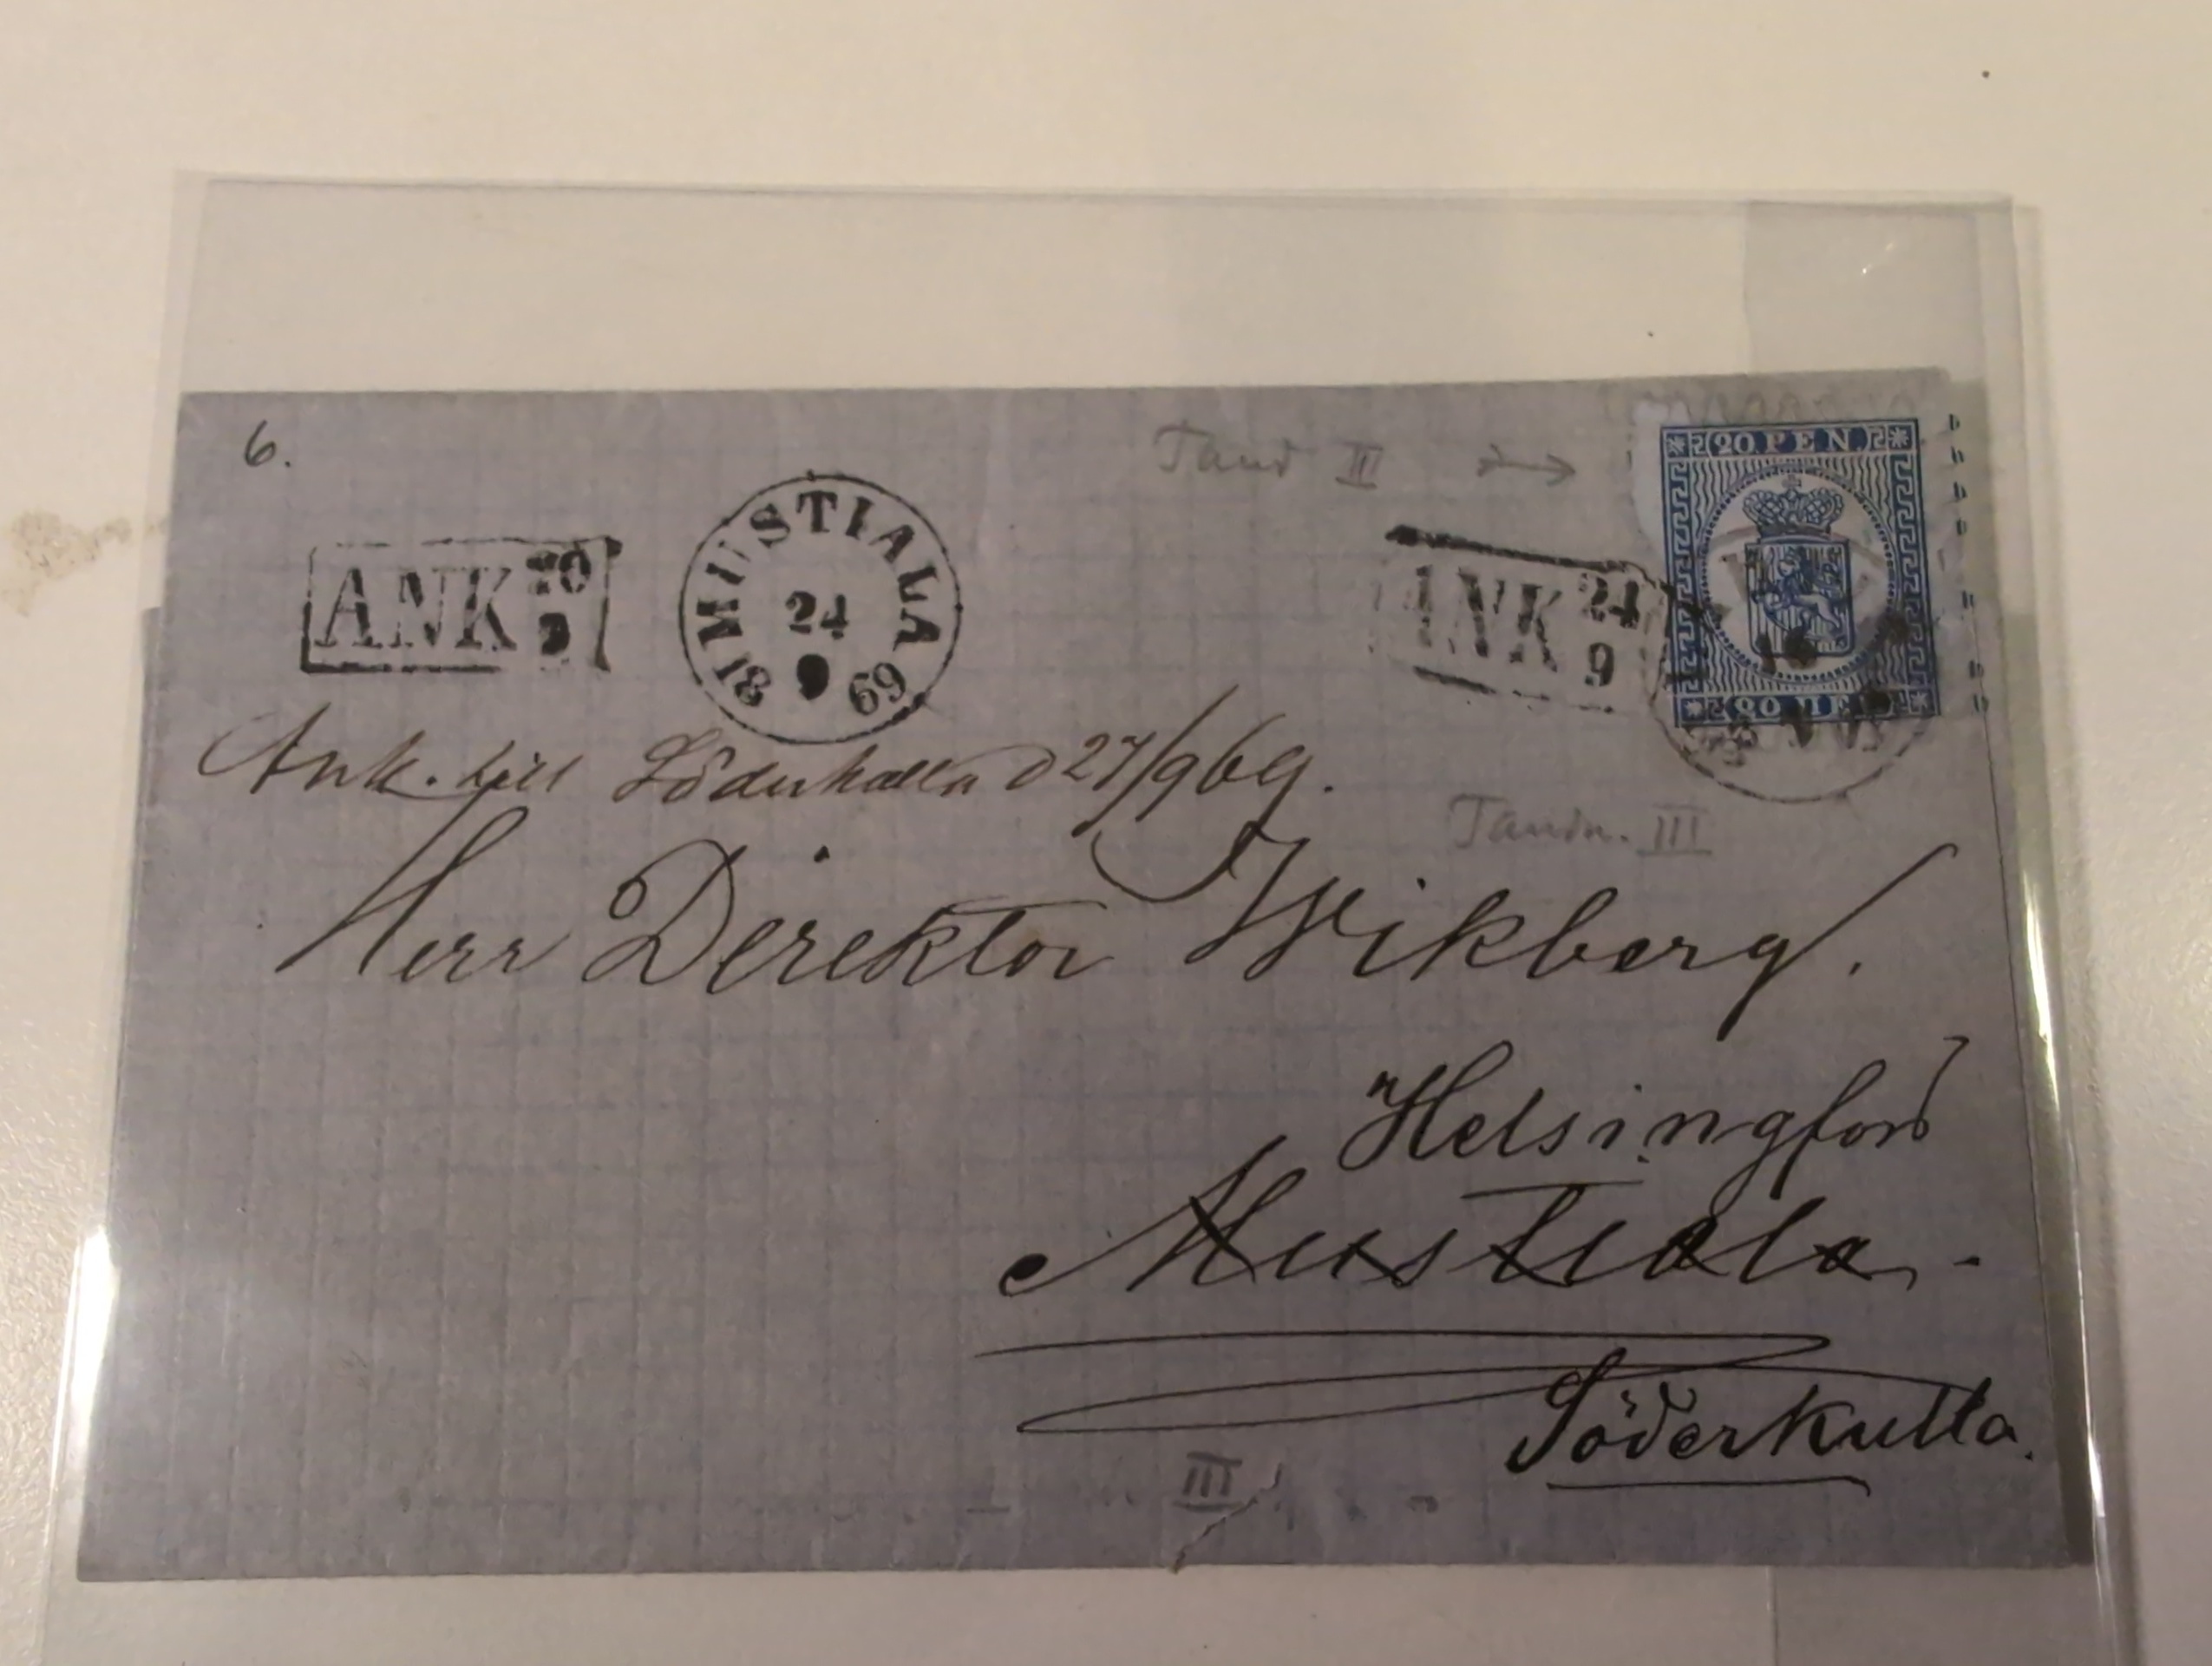 6.
Tand III
20. PEN.
ANK
MUSTIALA
24
9
18 69
ANK 24
9
Ank. till Söderkulla d 27/9 69.
Tandn. III
Herr Direktor Wikberg.
Helsingfors
Mustiala.
Söderkulla.
III